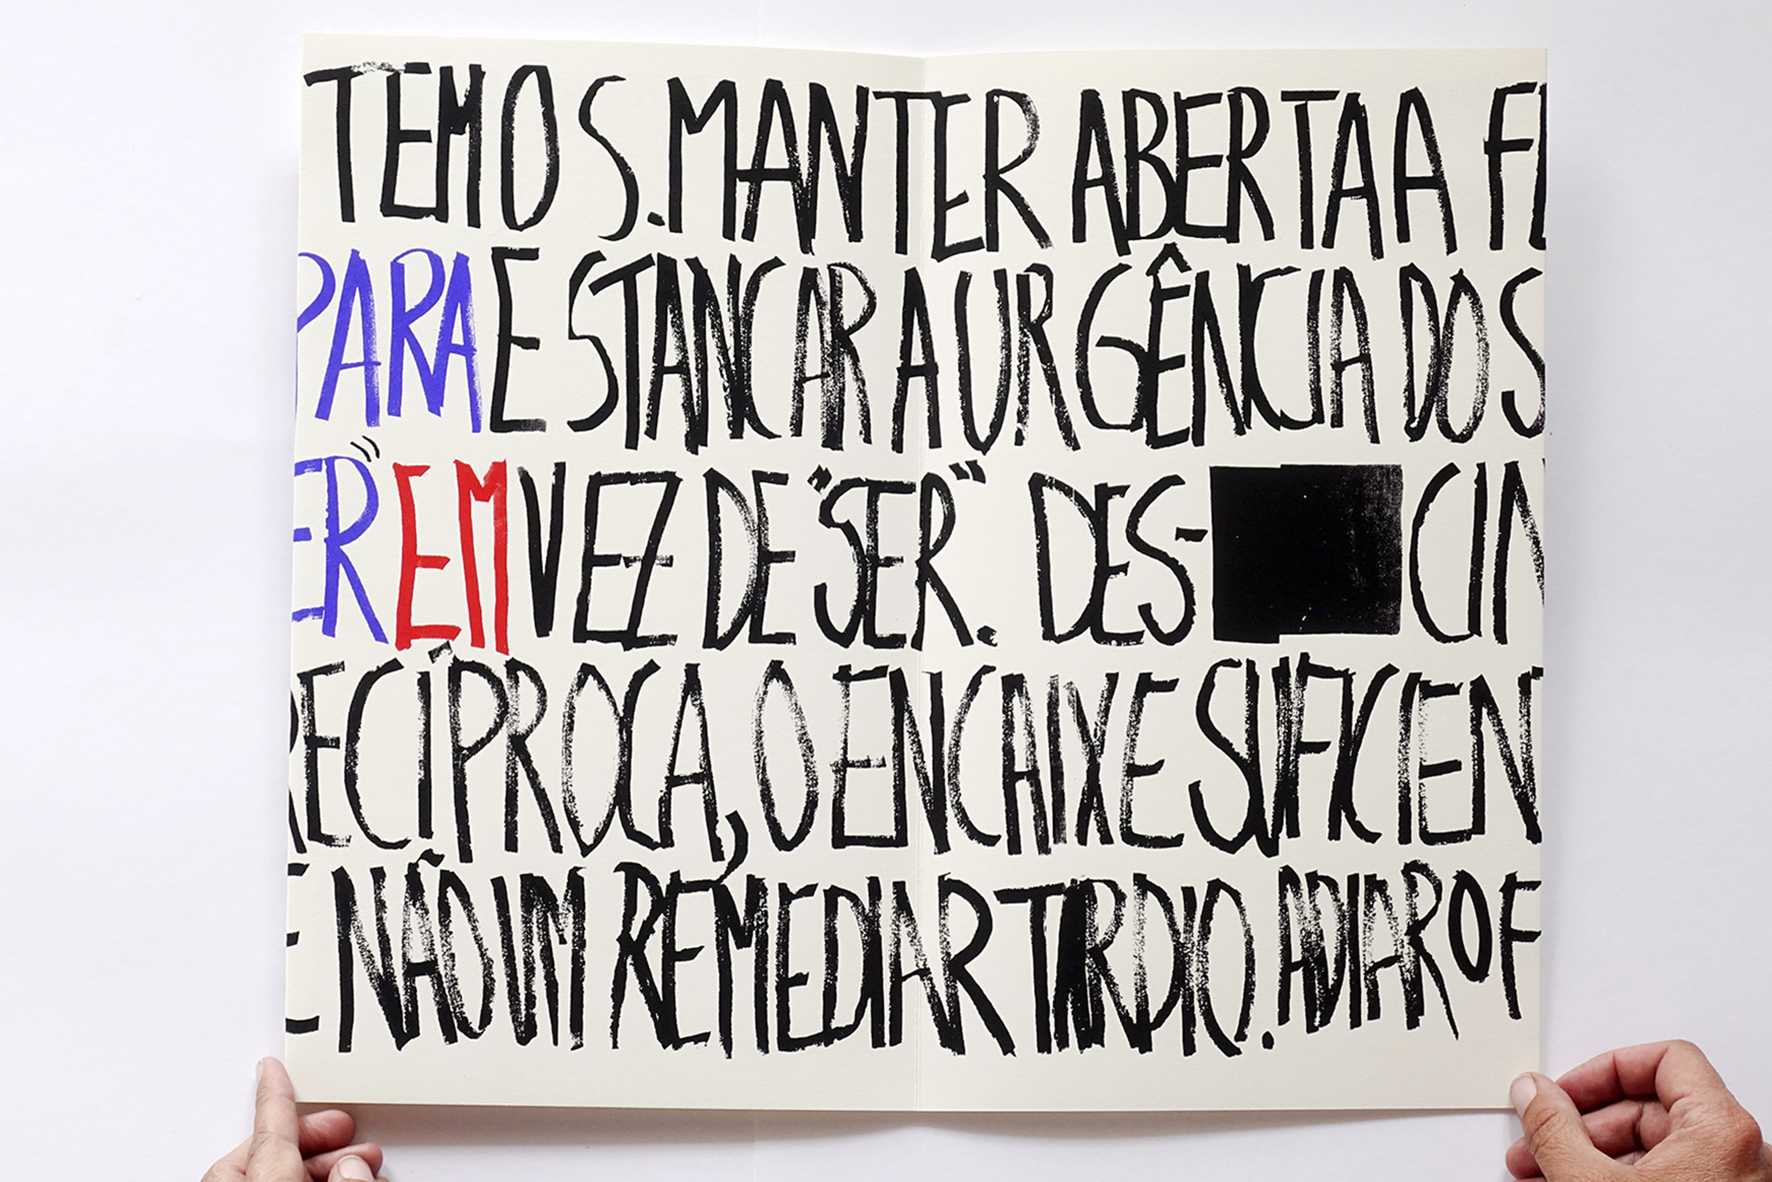 TEMOS. MANTER ABERTA A FE
PARA ESTANCAR A URGÊNCIA DOS
ER" EM VEZ DE "SER". DES- CIN
RECÍPROCA, O ENCAIXE SUFICIEN
E NÃO IM REMEDIAR TARDIO. ADIAR O F